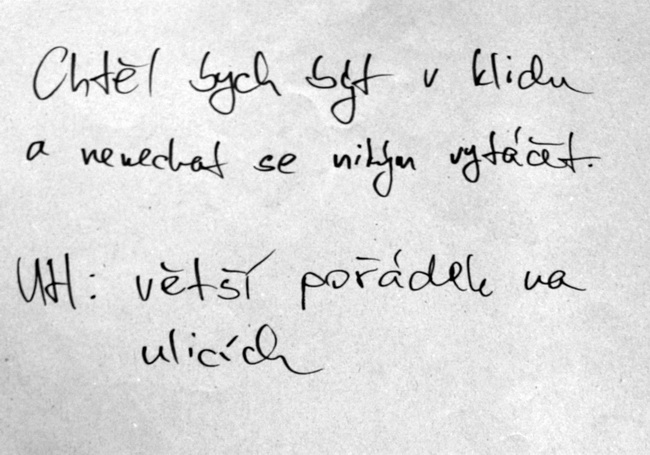 Chtěl bych být v klidu
a nenechat se nikým vytáčet.
UH: větší pořádek na
ulicích